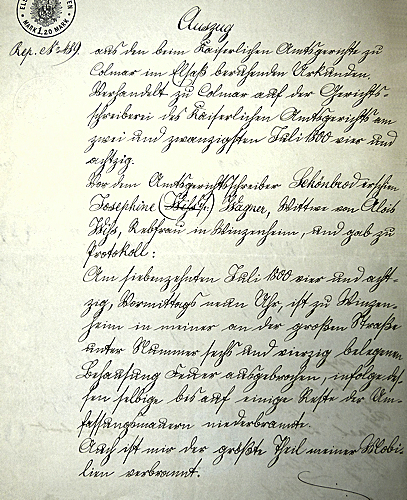 Auszug
Rep. No 489. aus den beim Kaiserlichen Amtsgerichte zu
Colmar im Elsaß beruhenden Urkunden.
Verhandelt zu Colmar auf der Gerichts-
schreiberei des Kaiserlichen Amtsgerichts am
zwei und zwanzigsten Juli 1800 vier und
achtzig.
Vor dem Amtsgerichtsschreiber Schönbrod erschien
Josephine (Wyß) Wagner, Wittwe von Alois
Wyß, Rebfrau in Winzenheim, und gab zu
Protokoll:
Am siebenzehnten Juli 1800 vier und acht-
zig, Vormittags neun Uhr, ist zu Winzen-
heim in meiner an der großen Straße
unter Nummer sechs und vierzig belegenen
Behausung Feuer ausgebrochen, infolge des-
sen selbige bis auf einige Reste der Um-
fassungsmauern niederbrannte.
Auch ist mir der größte Theil meiner Mobi-
lien verbrannt.
MARK 1,20 MARK